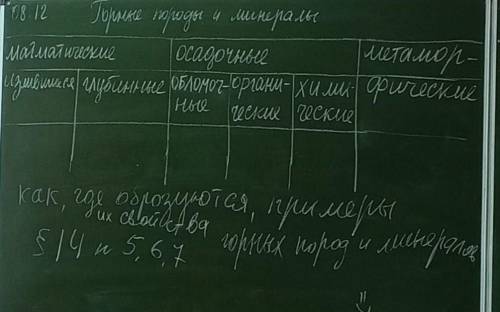 08.12 Горные породы и минералы
магматические осадочные метамор-
излившиеся глубинные обломоч- органи- хими- фические
ные ческие ческие
как, где образуются, примеры
их свойства
§ 14 п 5, 6, 7 горных пород и минералов